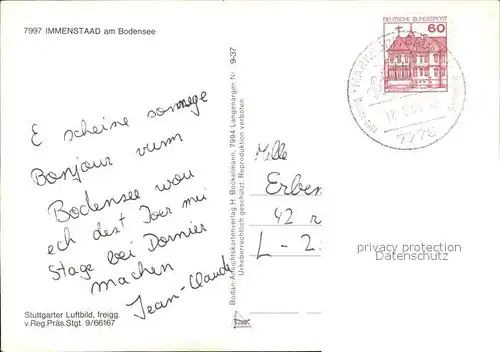 7997 IMMENSTAAD am Bodensee
E scheine sonnege
Bonjour vum
Bodensee wou
ech dest Joer mei
Stage bei Dornier
machen
Jean-Claude
Stuttgarter Luftbild, freigg.
v.Reg.Präs.Stgt. 9/66167
Bodan-Ansichtskartenverlag H. Bockelmann, 7994 Langenargen Nr. 9-37
Urheberrechtlich geschützt. Reproduktion verboten
DEUTSCHE BUNDESPOST
60
7778
Mlle
Erben
42 r
L - 2
privacy protection
Datenschutz